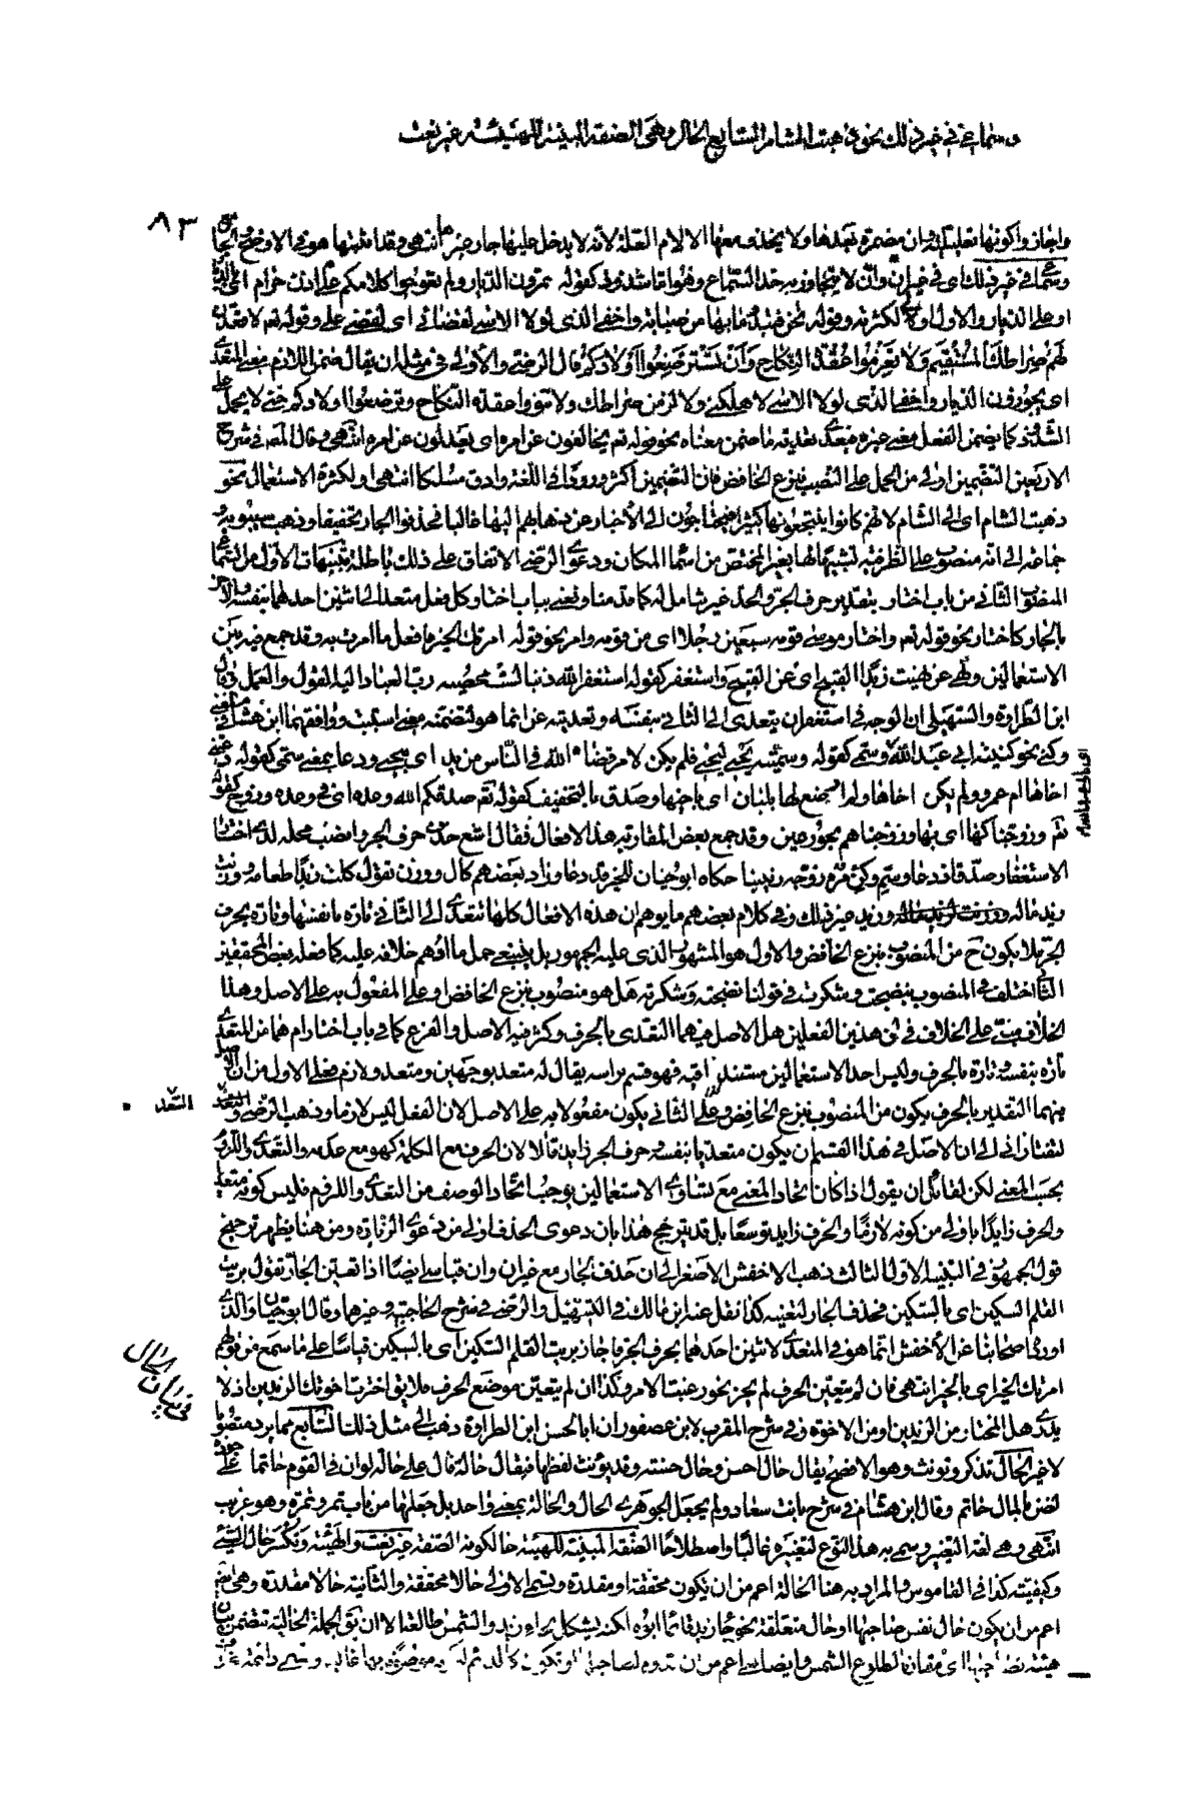 وسماعي في غير ذلك نحو ذهبت الشام السابع الحال وهي الصفة المبينة للهيئة غير نعت
٨٣
واجاز وا كونها تعليلية وان مضمرة بعدها ولا يحذف معها الا لام العلة لانه لا يدخل عليها جار غيرها انتهى وقد مثبتها هو في الاوضح
وسماعي في غير ذلك اي في غير ان وانّ لا يتجاوز به حد السماع وهو اما شذوذ كقوله تمرون الديار ولم تعوجوا كلامكم علي اذن حرام اي بالديار
او على الديار والاول اوضح لكثرته وقوله تحن فتبدي ما بها من صبابة واخفي الذي لولا الاسى لقضاني اي لقضى علي وقوله تعالى لاقعدن
لهم صراطك المستقيم ولا تعزموا عقدة النكاح وان تسترضعوا اولادكم قال الرضي والاولى في مثله ان يقال ضمن اللازم معنى المتعدي
اي يجوزون الديار واخفي الذي لولا الاسى لاهلكني ولالزمن صراطك ولا تنووا عقدة النكاح وترضعوا اولادكم حتى لا يحمل على
الشذوذ كما يضمن الفعل معنى غيره فيعدى تعدية ما ضمن معناه نحو قوله تعالى يخالفون عن امره اي يعدلون عن امره انتهى وقال المص في شرح
الاربعين التضمين اولى من الحمل على النصب بنزع الخافض فان التضمين اكثر ورودا في اللغة وادق مسلكا انتهى او لكثرة الاستعمال نحو
ذهبت الشام اي الى الشام لانهم كانوا ينتجعونها كثيرا فيحتاجون الى الاخبار عن ذهابهم اليها غالبا فحذفوا الجار تخفيفا وذهب سيبويه و
جماعة الى انه منصوب على الظرفية تشبيها لها بغير المختص من اسماء المكان ودعوى الرضي الاتفاق على ذلك باطلة تنبيهات الاول من السماعي
المفعول الثاني من باب اختار بتقدير حرف الجر والحد غير شامل له كما قدمنا ونعني بباب اختار كل فعل متعد الى اثنين احدهما بنفسه والاخر
بالجار كاختار نحو قوله تعالى واختار موسى قومه سبعين رجلا اي من قومه وامر نحو قوله امرتك الخير فافعل ما امرت به وقد جمع فيه بين
الاستعمالين ونهى عن نهيت زيدا القبيح اي عن القبيح واستغفر كقوله استغفر الله ذنبا لست محصيه رب العباد اليه القول والعمل وقال
ابن الطراوة والسهيلي ان الوجه في استغفر ان يتعدى الى الثاني بنفسه وتعديته عن انما هو لتضمنه معنى استتبت ووافقهما ابن هشام في
وكنى نحو كنيته ابي عبد الله وسمى كقوله وسميته يحيى ليحيى فلم يكن لامر قضاه الله في الناس من بد اي بيحيى ودعا بمعنى سمى كقوله دعتني
اخاها ام عمرو ولم اكن اخاها ولم ارضع لها بلبان اي باخيها وصدق بالتخفيف كقوله تعالى صدقكم الله وعده اي في وعده وزوج كقوله
تعالى وزوجناكها اي بها وزوجناهم بحور عين وقد جمع بعض المغاربة هذا الافعال فقال
الاستغفار صدقا قد دعا وسمى وكنى
الجر فلا يكون ح من المنصوب بنزع الخافض والاول هو المشهور الذي عليه الجمهور بل ينبغي حمل ما اوهم خلافه عليه كما فعله بعض المحققين
الثاني اختلف في المنصوب بنصحت وشكرت في قولنا نصحته وشكرته هل هو منصوب بنزع الخافض او على المفعول به على الاصل وهذا
الخلاف مبني على الخلاف في ان هذين الفعلين هل الاصل فيهما التعدي بالحرف وكثر فيه الاصل والفرع كما في باب اختار ام هما من المتعدي
تارة بنفسه وتارة بالحرف وليس احد الاستعمالين مستند
منهما التقدير بالحرف يكون من المنصوب بنزع الخافض وعلى الثاني يكون مفعولا به على الاصل لان الفعل ليس لازما وذهب الرضي و
التعد
لتفتازاني الى ان الاصل في هذا القسم ان يكون متعديا بنفسه وحرف الجر زايد قالا لان الحرف مع الكلمة كهو مع عدمه والتعدي واللزوم
بحسب المعنى لكن لقائل ان يقول اذا كان اتحاد المعنى مع تساوي الاستعمالين يوجب اتحاد الوصف من التعدي واللزوم فليس كونه متعديا
والحرف زايدا باولى من كونه لازما والحرف زايد توسعا بل قد يترجح هذا بان دعوى الحذف اولى من دعوى الزيادة ومن هنا يظهر ترجيح
قول الجمهور في التنبيه الاول الثالث ذهب الاخفش الاصغر الى ان حذف الجار مع غير ان وان قياسي ايضا اذا تعين الجار تقول بريت
القلم السكين اي بالسكين فحذف الجار لتعينه كذا نقل عنه ابن مالك في التسهيل والرضي في شرح الحاجبية وغيرهما وقال ابو حيان والذي
اورده اصحابنا عن الاخفش انما هو في المتعدي لاثنين احدهما بحرف الجر فاجاز بريت القلم السكين اي بالسكين قياسا على ما سمع من قولهم
امرتك الخير اي بالخير انتهى فان لم يتعين الحرف لم يجز نحو رغبت الامر وكذا ان لم يتعين موضع الحرف فلا يق اخترت اخوتك الزيدين اذ لا
يدرى هل المختار من الزيدين او من الاخوة وفي شرح المقرب لابن عصفور ان ابا الحسن ابن الطراوة ذهب الى مثل ذلك السابع مما يرد منصوبا
لا غير الحال تذكر وتونث وهو الافصح يقال حال حسن وحال حسنة وقد يؤنث لفظها فيقال حالة قال على حالة لو ان في القوم حاتما على جوده
لضن بالمال حاتم وقال ابن هشام في شرح بانت سعاد ولم يجعل الجوهري الحال والحالة بمعنى واحد بل جعلها من باب تمر وتمرة وهو غريب
انتهى وهي لغة التغير وسمي به هذا النوع لتغيره غالبا واصطلاحا الصفة المبينة للهيئة حالكونه الصفة غير نعت والهيئة وتكسر حال الشيء
وكيفيته كذا في القاموس والمراد به هنا الحالة اعم من ان يكون محققة او مقدرة وتسمى الاولى حالا محققة والثانية حالا مقدرة وهي ايضا
اعم من ان يكون حال نفس صاحبها او حال متعلقه نحو جاء زيد قائما ابوه لكنه يشكل بجاء زيد والشمس طالعة الا ان يق الجملة الحالية تتضمن بيان